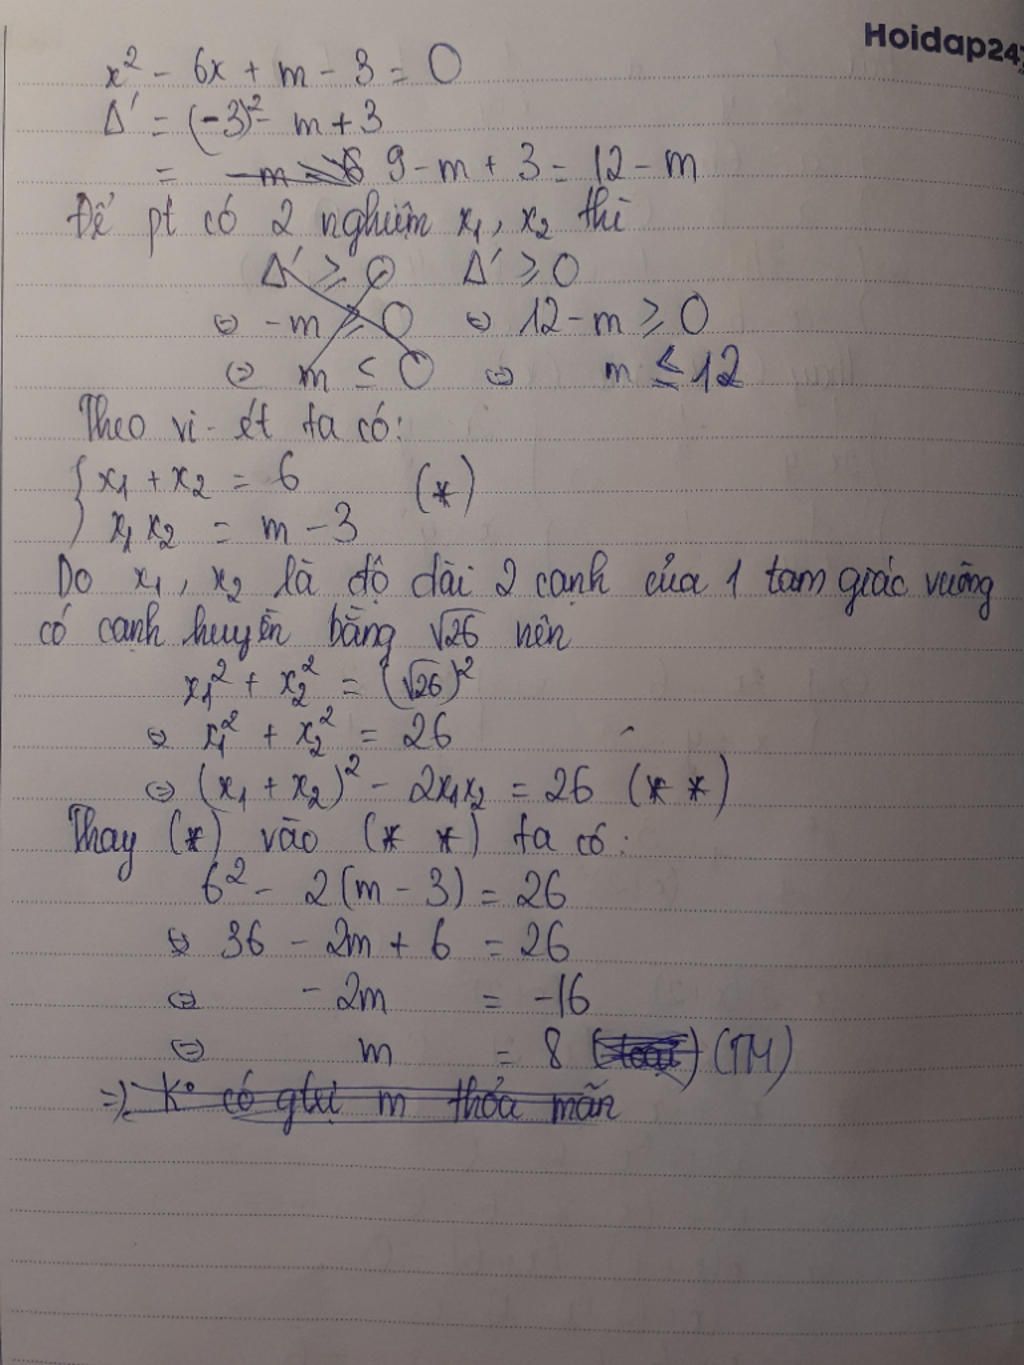 Hoidap247
x² - 6x + m - 3 = 0
Δ' = (-3)² - m + 3
= 9 - m + 3 = 12 - m
Để pt có 2 nghiệm x₁, x₂ thì
Δ' ≥ 0 Δ' ≥ 0
⇔ -m ≥ 0 ⇔ 12 - m ≥ 0
⇔ m ≤ 0 ⇔ m ≤ 12
Theo vi-ét ta có:
{ x₁ + x₂ = 6 (*)
x₁ x₂ = m - 3
Do x₁, x₂ là độ dài 2 cạnh của 1 tam giác vuông
có cạnh huyền bằng √26 nên
x₁² + x₂² = (√26)²
⇔ x₁² + x₂² = 26
⇔ (x₁ + x₂)² - 2x₁x₂ = 26 (* *)
Thay (*) vào (* *) ta có:
6² - 2(m - 3) = 26
⇔ 36 - 2m + 6 = 26
⇔ - 2m = -16
⇔ m = 8 (TM)
=> K° có gtrị m thỏa mãn